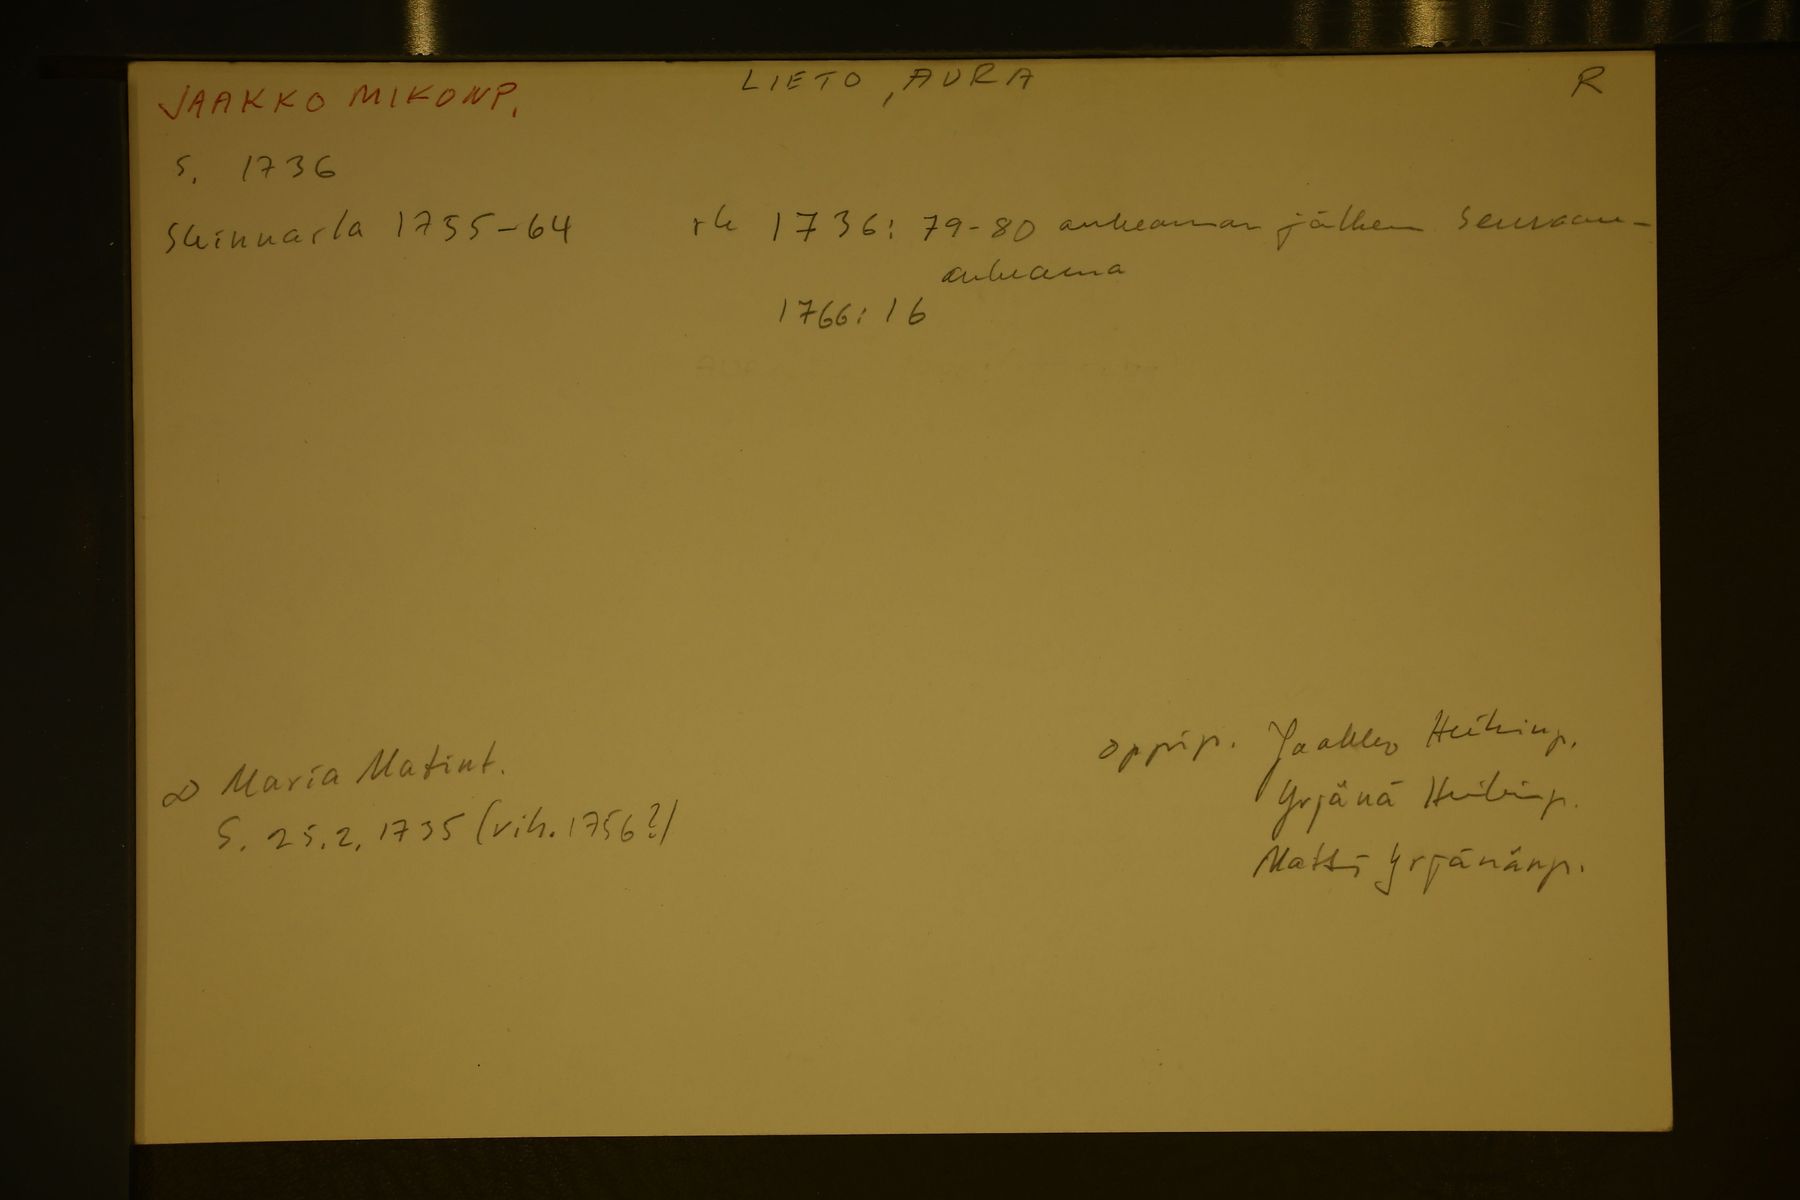 JAAKKO MIKONP.
LIETO, AURA
R
s. 1736
Skinnarla 1755-64
rk 1736: 79-80 aukeaman jälkeen seuraava
aukeama
1766: 16
∞ Maria Matint.
s. 25.2.1735 (vih. 1756?)
oppip. Jaakko Heikinp.
Yrjänä Heikinp.
Matti Yrjänänp.